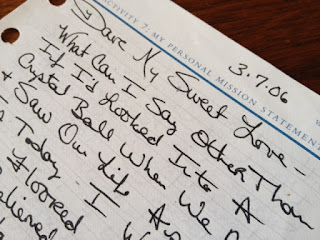 ACTIVITY 7: MY PERSONAL MISSION STATEMENT
3.7.06
Dave My Sweet Love -
What Can I Say Other Than
If I'd Looked Into A
Crystal Ball When We
+ Saw Our Life
Today - I
floored